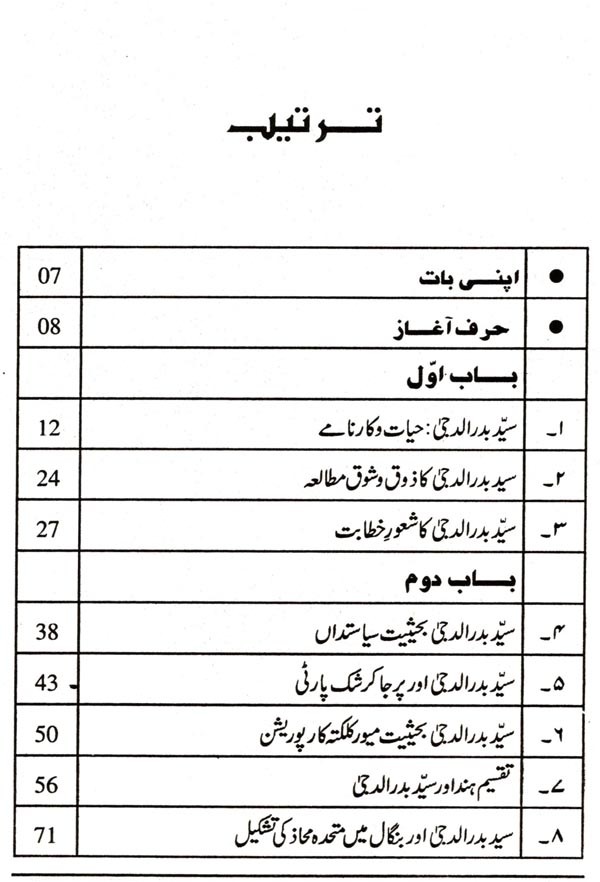 ترتیب
● اپنی بات 07
● حرف آغاز 08
باب اوّل
۱۔ سیّد بدرالدجیٰ: حیات و کارنامے 12
۲۔ سید بدرالدجیٰ کا ذوق و شوق مطالعہ 24
۳۔ سیّد بدرالدجیٰ کا شعورِ خطابت 27
باب دوم
۴۔ سیّد بدرالدجیٰ بحیثیت سیاستداں 38
۵۔ سیّد بدرالدجیٰ اور پرجا کرشک پارٹی 43
۶۔ سیّد بدرالدجیٰ بحیثیت میور کلکتہ کارپوریشن 50
۷۔ تقسیم ہند اور سیّد بدرالدجیٰ 56
۸۔ سید بدرالدجیٰ اور بنگال میں متحدہ محاذ کی تشکیل 71